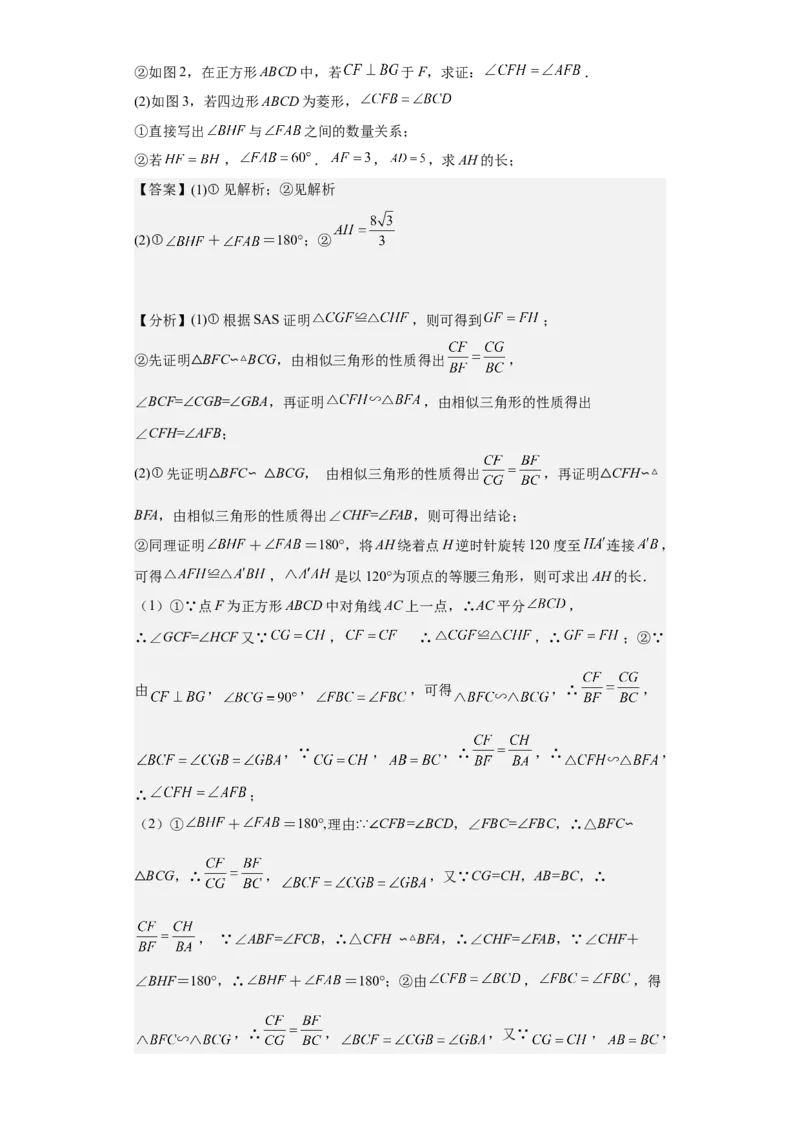 ②如图2，在正方形ABCD中，若CF⊥BG于F，求证：∠CFH=∠AFB．
(2)如图3，若四边形ABCD为菱形，∠CFB=∠BCD
①直接写出∠BHF与∠FAB之间的数量关系；
②若HF=BH，∠FAB=60°．AF=3，AD=5，求AH的长；
【答案】(1)①见解析；②见解析
(2)①∠BHF＋∠FAB＝180°；②AH=8√3/3
【分析】(1)①根据SAS证明△CGF≌△CHF，则可得到GF=FH；
②先证明△BFC∽△BCG，由相似三角形的性质得出CF/BF=CG/BC，
∠BCF=∠CGB=∠GBA，再证明△CFH∽△BFA，由相似三角形的性质得出
∠CFH=∠AFB；
(2)①先证明△BFC∽ △BCG， 由相似三角形的性质得出CF/CG=BF/BC，再证明△CFH∽△
BFA，由相似三角形的性质得出∠CHF=∠FAB，则可得出结论；
②同理证明∠BHF＋∠FAB＝180°，将AH绕着点H逆时针旋转120度至HA′连接A′B，
可得△AFH≌△A′BH，△A′AH是以120°为顶点的等腰三角形，则可求出AH的长．
（1）①∵点F为正方形ABCD中对角线AC上一点，∴AC平分∠BCD，
∴∠GCF=∠HCF又∵CG=CH，CF=CF ∴△CGF≌△CHF，∴GF=FH；②∵
由CF⊥BG，∠BCG=90°，∠FBC=∠FBC，可得△BFC∽△BCG，∴CF/BF=CG/BC，
∠BCF=∠CGB=∠GBA，∵CG=CH，AB=BC，∴CF/BF=CH/BA，∴△CFH∽△BFA，
∴∠CFH=∠AFB；
（2）①∠BHF＋∠FAB＝180°,理由:∵∠CFB=∠BCD，∠FBC=∠FBC，∴△BFC∽
△BCG，∴CF/CG=BF/BC，∠BCF=∠CGB=∠GBA，又∵CG=CH，AB=BC，∴
CF/BF=CH/BA， ∵∠ABF=∠FCB，∴△CFH ∽△BFA，∴∠CHF=∠FAB，∵∠CHF＋
∠BHF＝180°，∴∠BHF＋∠FAB＝180°；②由∠CFB=∠BCD，∠FBC=∠FBC，得
△BFC∽△BCG，∴CF/CG=BF/BC，∠BCF=∠CGB=∠GBA，又∵CG=CH，AB=BC，